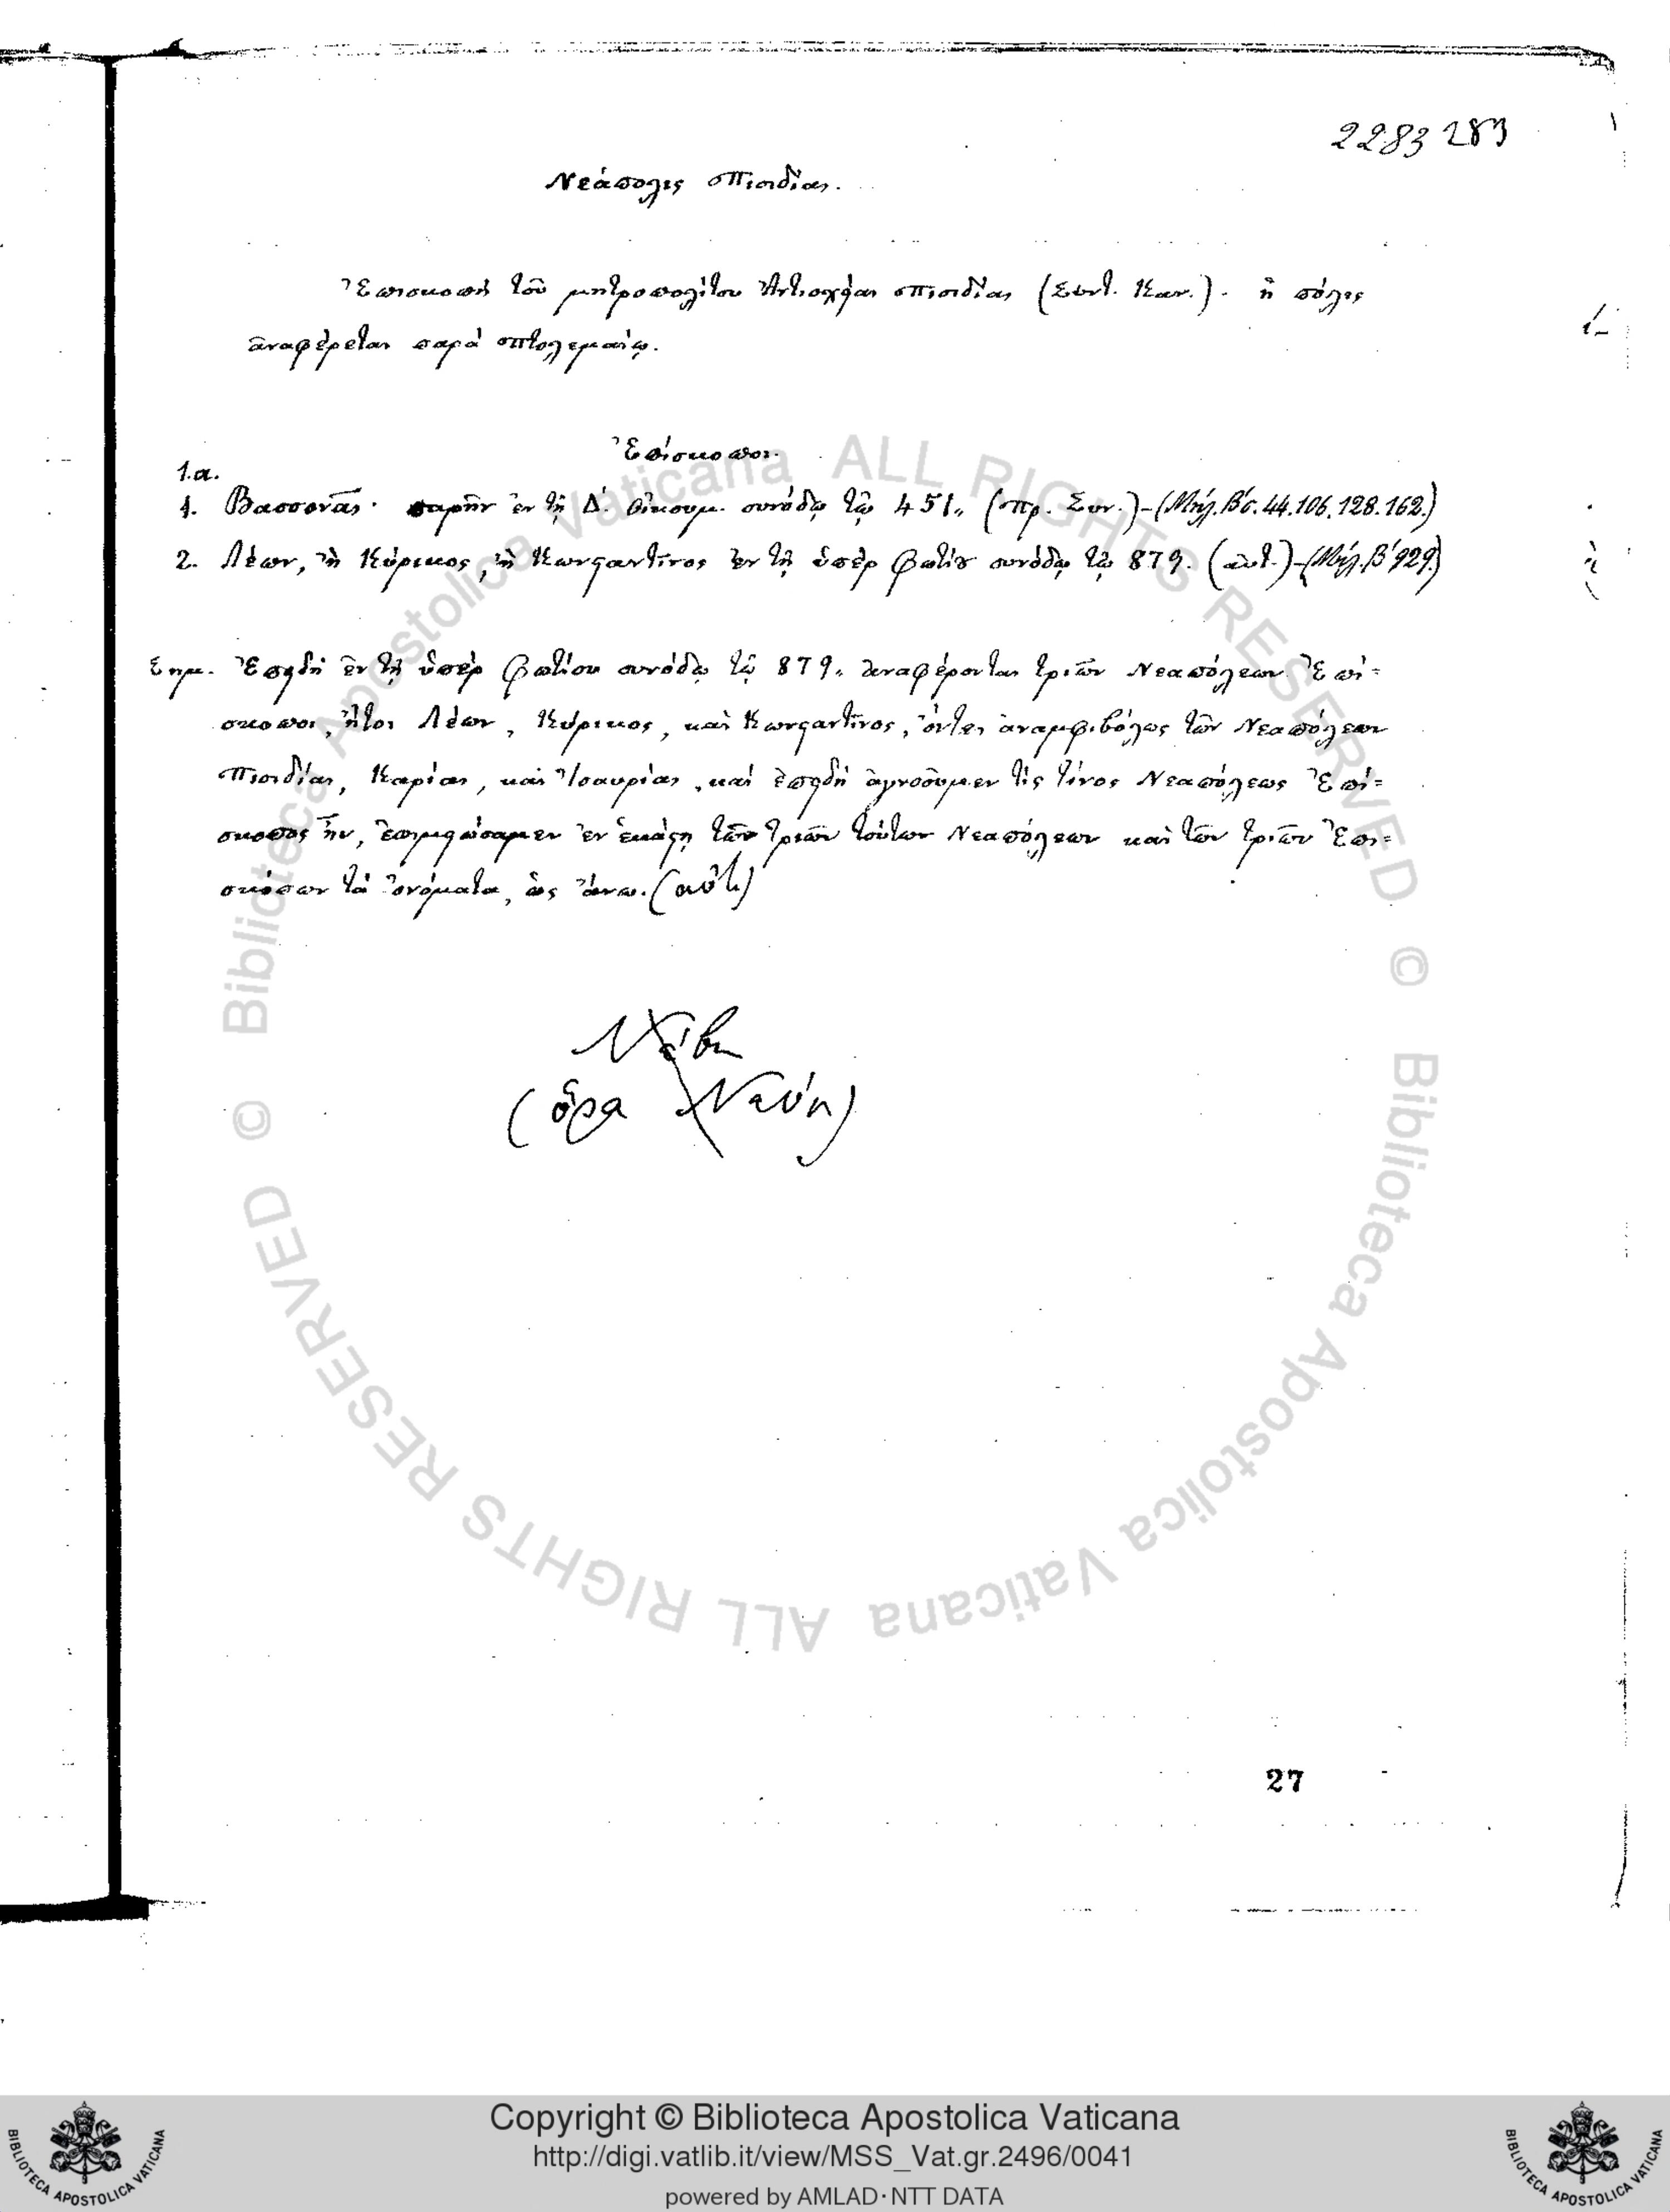 2283 283
Νεάπολις Πισιδίας.
Ἐπισκοπὴ τοῦ μητροπολίτου Ἀντιοχείας Πισιδίας (Συντ. Καν.). ἡ πόλις
ἀναφέρεται παρὰ Πτολεμαίῳ.
Ἐπίσκοποι.
1.α.
1. Βασσονᾶς· παρῆν ἐν τῇ Δ΄. Οἰκουμ. συνόδῳ τῷ 451. (Πρ. Συν.)-(44.106.128.162.)
2. Λέων, ἢ Κύρικος, ἢ Κωνσταντῖνος ἐν τῇ ὑπὲρ Φωτίου συνόδῳ τῷ 879. (αὐτ.)-(Β΄ 929)
Σημ. Ἐπειδὴ ἐν τῇ ὑπὲρ Φωτίου συνόδῳ τῷ 879. ἀναφέρονται τριῶν Νεαπόλεων Ἐπί=
σκοποι, ἤτοι Λέων, Κύρικος, καὶ Κωνσταντῖνος, ὄντες ἀναμφιβόλως τῶν Νεαπόλεων
Πισιδίας, Καρίας, καὶ Ἰσαυρίας, καὶ ἐπειδὴ ἀγνοοῦμεν τίς τίνος Νεαπόλεως Ἐπί=
σκοπος ἦν, ἐσημειώσαμεν ἐν ἑκάστῃ τῶν τριῶν τούτων Νεαπόλεων καὶ τῶν τριῶν Ἐπι=
σκόπων τὰ ὀνόματα, ὡς ἄνω. (αὐτ.)
(ὅρα Ναύη)
27
© Biblioteca Apostolica Vaticana ALL RIGHTS RESERVED
© Biblioteca Apostolica Vaticana ALL RIGHTS RESERVED
Copyright © Biblioteca Apostolica Vaticana
http://digi.vatlib.it/view/MSS_Vat.gr.2496/0041
powered by AMLAD·NTT DATA
BIBLIOTECA APOSTOLICA VATICANA
BIBLIOTECA APOSTOLICA VATICANA